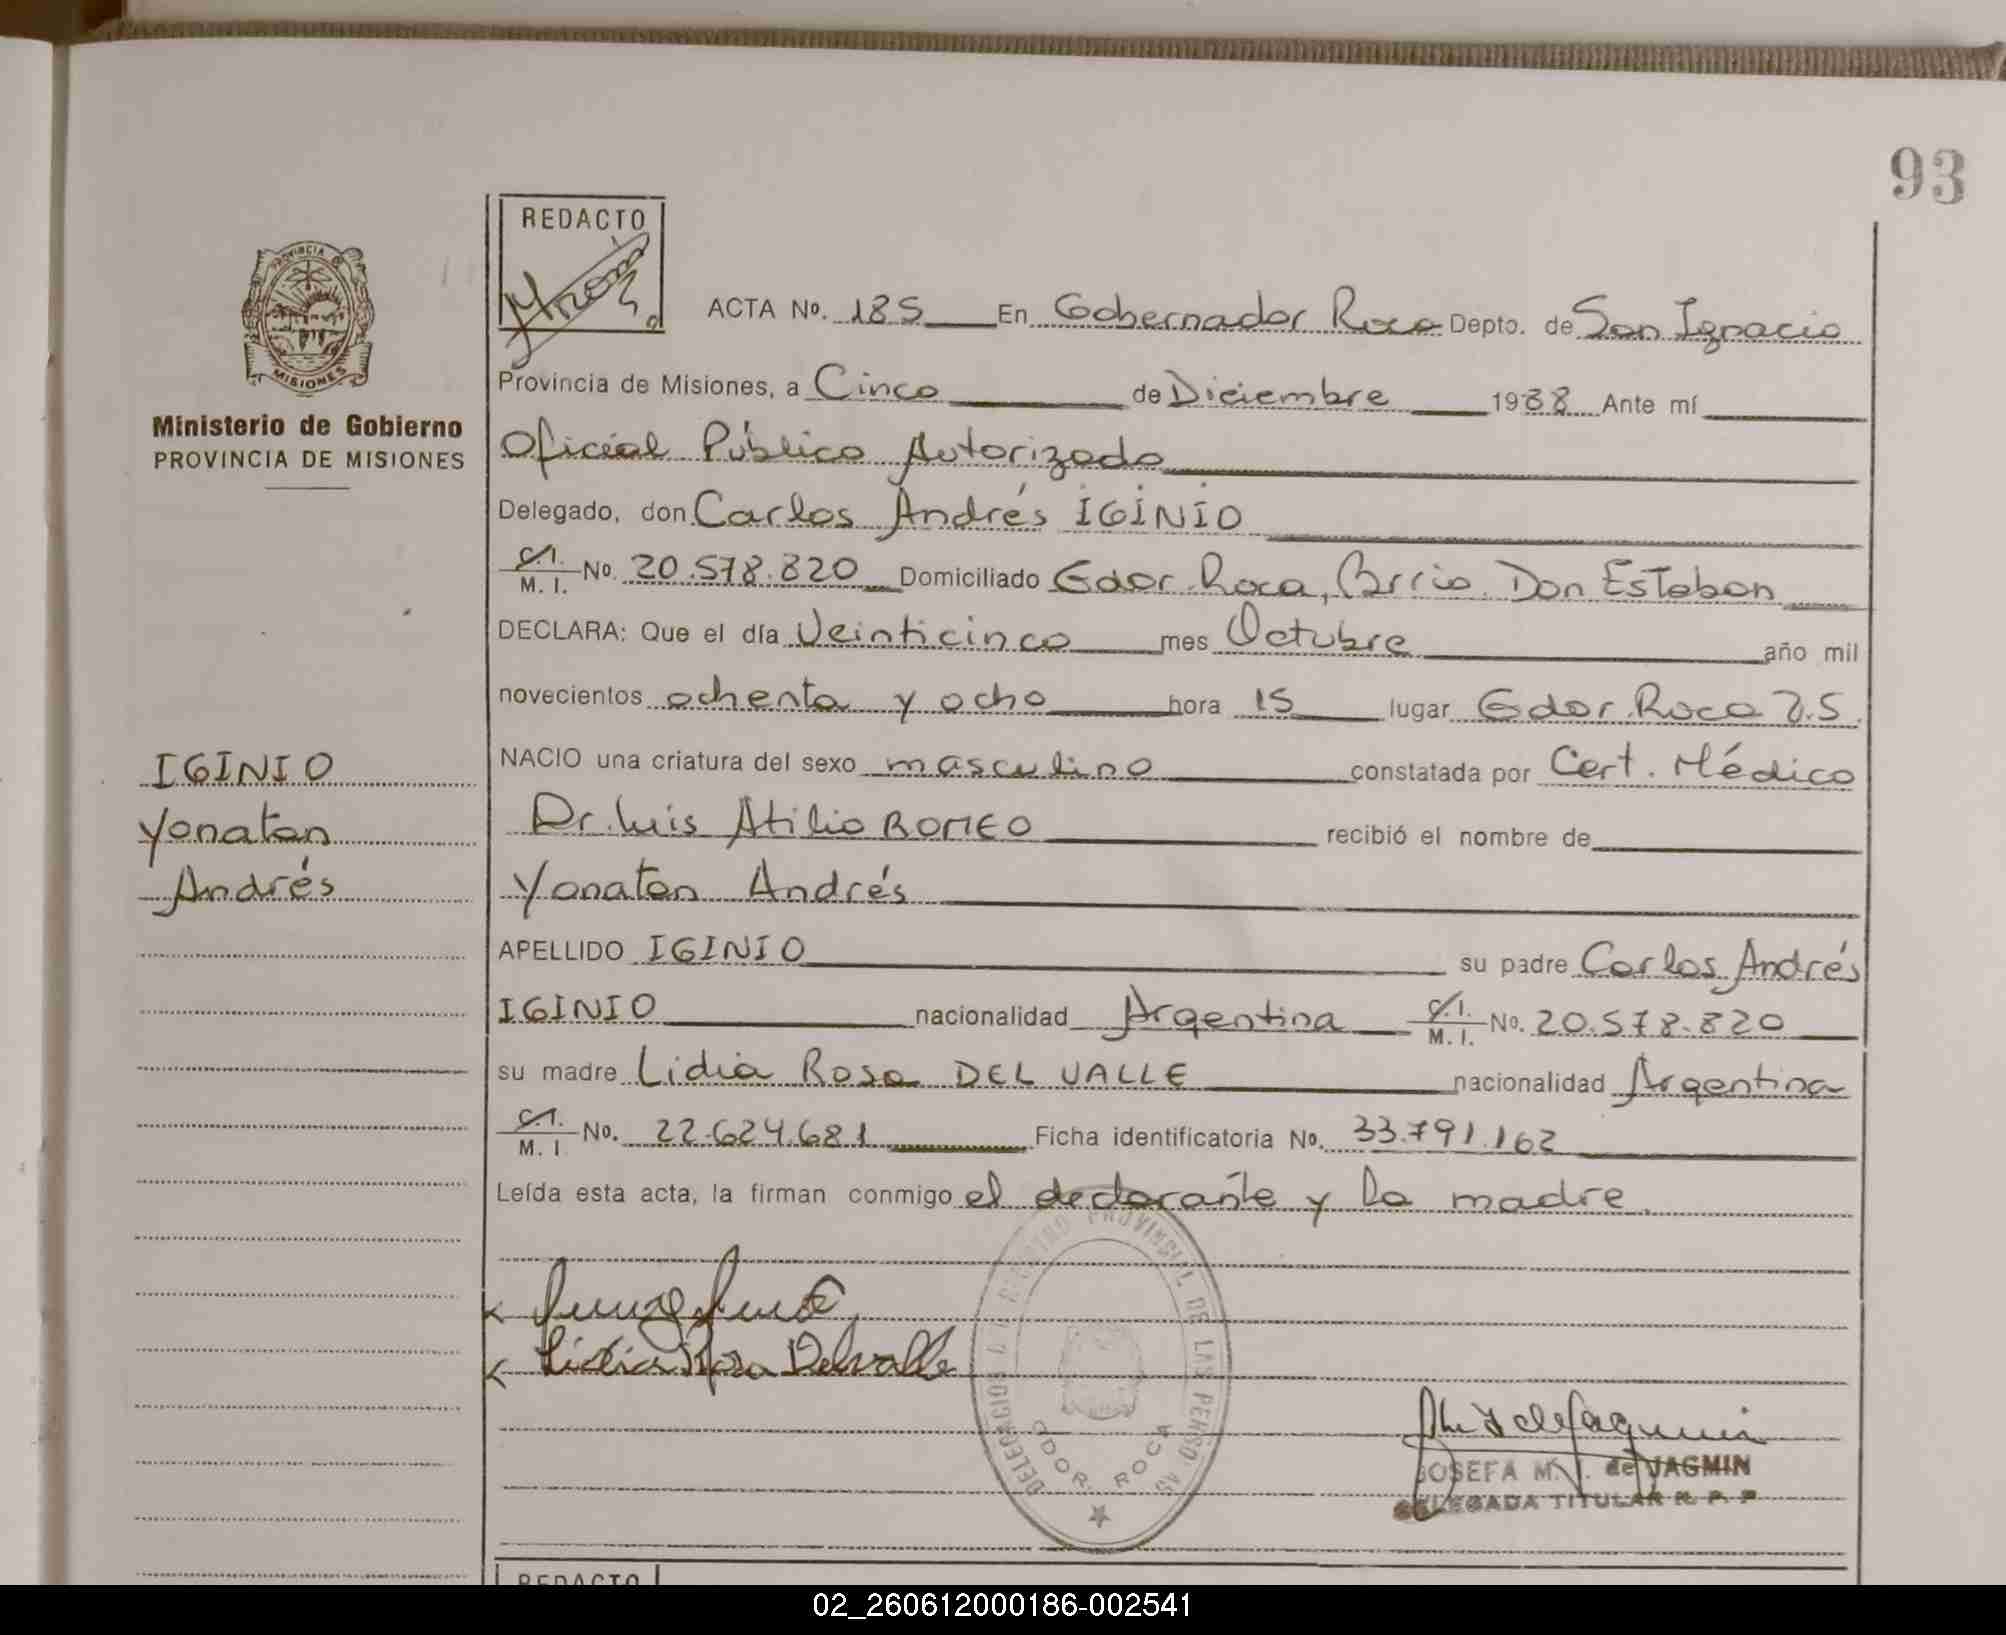 93
REDACTO
PROVINCIA DE
MISIONES
Ministerio de Gobierno
PROVINCIA DE MISIONES
ACTA No. 185 En Gobernador Roca Depto. de San Ignacio
Provincia de Misiones, a Cinco de Diciembre 1988 Ante mí
Oficial Público Autorizado
Delegado, don Carlos Andrés IGINIO
C.I. M. I. No. 20.578.820 Domiciliado Gdor. Roca, Brrio. Don Esteban
DECLARA: Que el día Veinticinco mes Octubre año mil
novecientos ochenta y ocho hora 15 lugar Gdor. Roca
NACIO una criatura del sexo masculino constatada por Cert. Médico
Dr. Luis Atilio ROMEO recibió el nombre de
Yonatan Andrés
IGINIO
Yonatan
Andrés
APELLIDO IGINIO su padre Carlos Andrés
IGINIO nacionalidad Argentina C.I. M. I. No. 20.578.820
su madre Lidia Rosa DEL VALLE nacionalidad Argentina
C.I. M. I No. 22.624.681 Ficha identificatoria No. 33.791.162
Leída esta acta, la firman conmigo el declarante y la madre.
Lidia Rosa Delvalle
DELEGACION REGISTRO PROVINCIAL DE LAS PERSONAS
GDOR. ROCA
JOSEFA M. de JAGMIN
DELEGADA TITULAR R. P. P
REDACTO
02_260612000186-002541